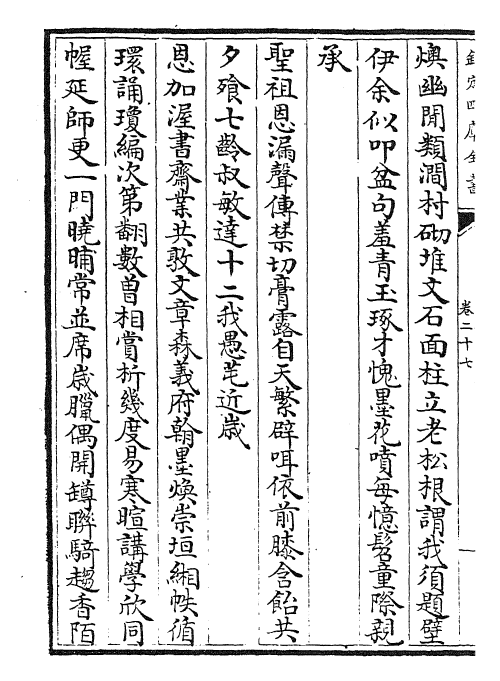 欽定四庫全書
卷二十七
燠幽閒類澗村砌堆文石面柱立老松根謂我須題壁
伊余似叩盆句羞青玉琢才愧墨花噴每憶髫童際親
承
聖祖恩漏聲傳禁切膏露自天繁辟咡依前膝含飴共
夕飱七齡叔敏達十二我愚芚近歲
恩加渥書齋業共敦文章森義府翰墨煥崇垣緗帙循
環誦瓊編次第翻數曾相賞析幾度易寒暄講學欣同
幄延師更一門曉晡常並席歲臘偶開罇聯騎趨香陌